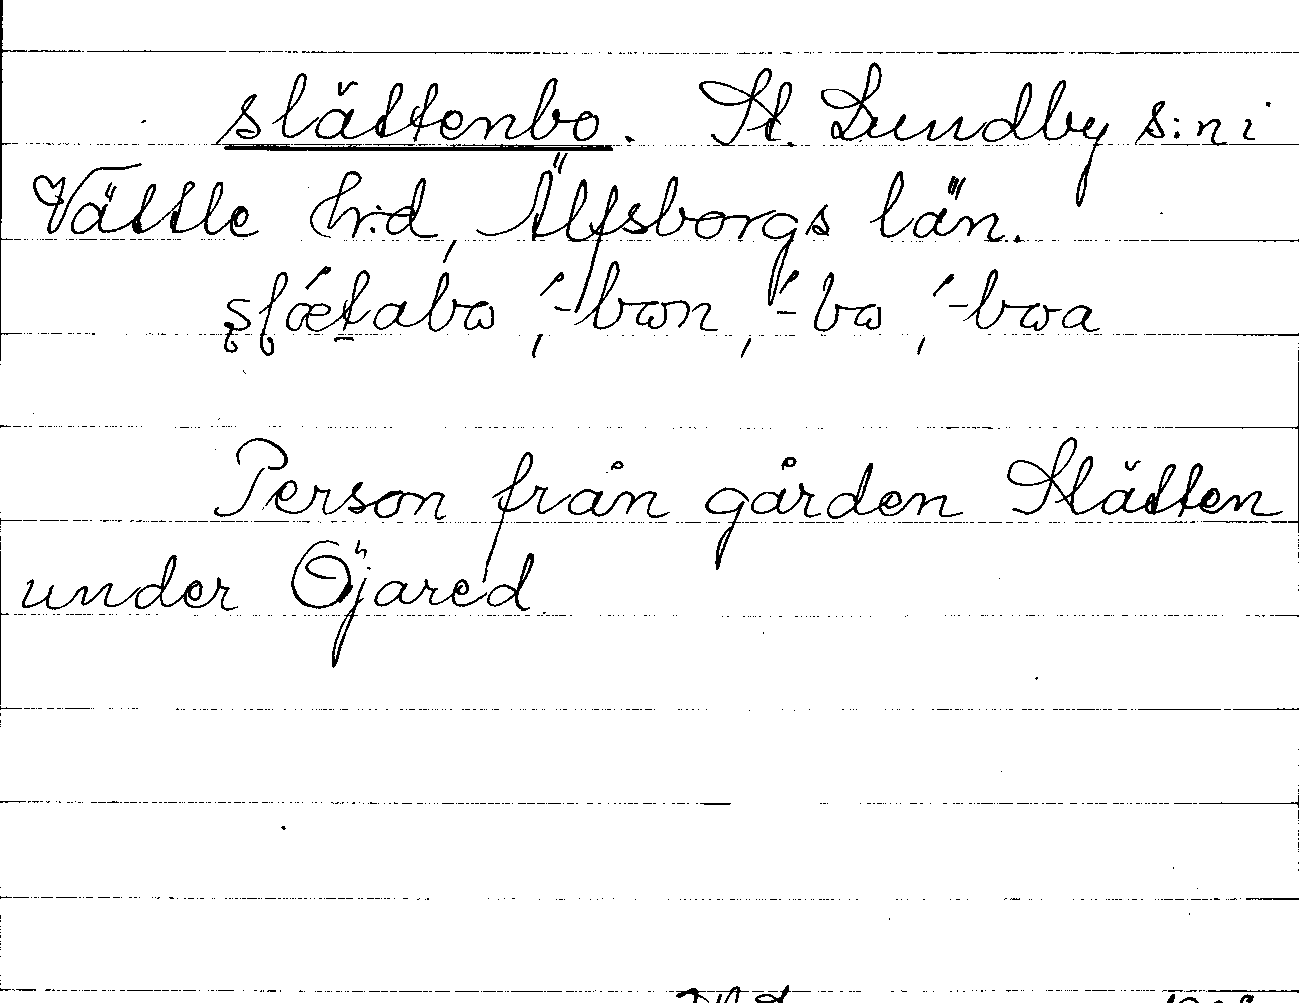 slättenbo. St. Lundby s:n i
Vättle h:d, Älfsborgs län.
slǽtabo, ́-bon, ́-bo, ́-boa
Person från gården Slätten
under Öjared